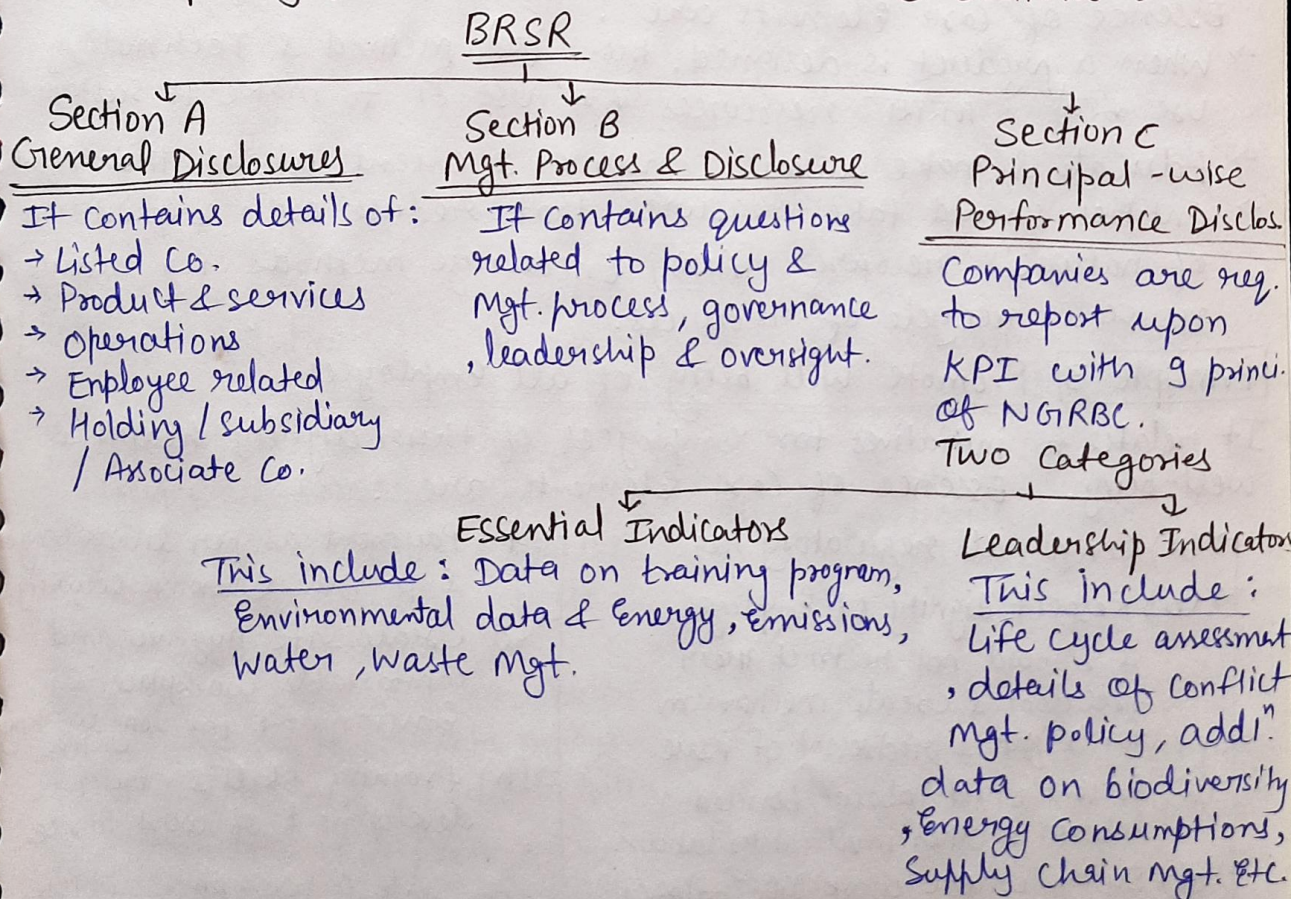 BRSR
Section A
General Disclosures
It contains details of:
→ Listed Co.
→ Product & services
→ Operations
→ Employee related
→ Holding / subsidiary
/ Associate Co.
Section B
Mgt. Process & Disclosure
It contains questions
related to policy &
Mgt. process, governance
, leadership & oversight.
Section C
Principal-wise
Performance Disclos.
Companies are req.
to report upon
KPI with 9 princi.
of NGRBC.
Two Categories
Essential Indicators
This include: Data on training program,
Environmental data & Energy, Emissions,
Water, Waste Mgt.
Leadership Indicators
This include:
Life cycle assessment
, details of conflict
Mgt. policy, addlⁿ.
data on biodiversity
, Energy Consumptions,
Supply Chain Mgt. Etc.